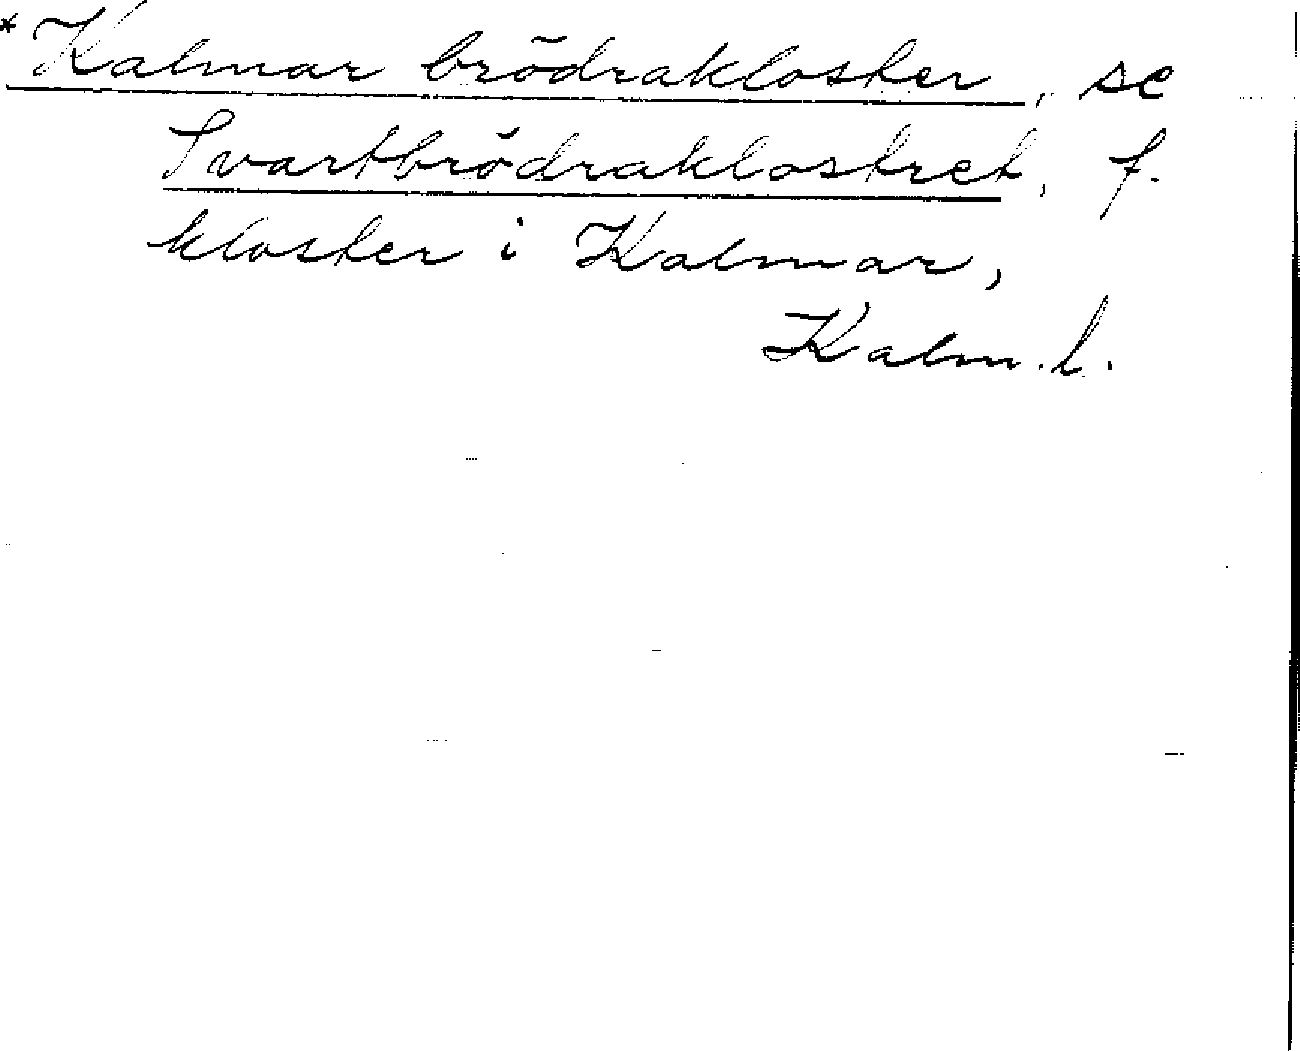 * Kalmar brödrakloster, se
Svartbrödraklostret, f.
kloster i Kalmar,
Kalm. l.